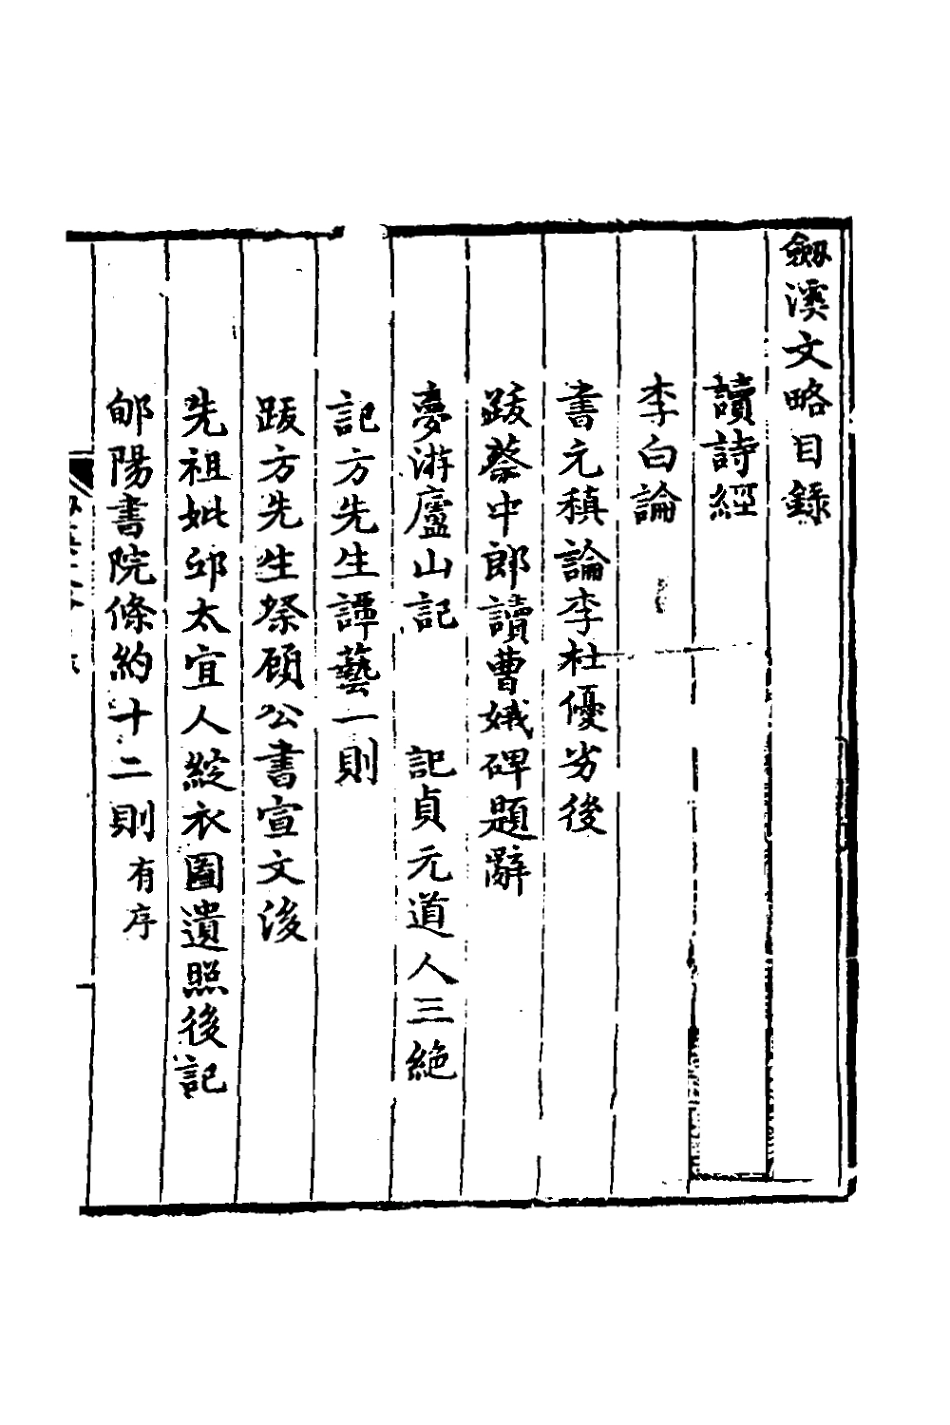 劔溪文略目錄
讀詩經
李白論
書元稹論李杜優劣後
跋蔡中郎讀曹娥碑題辭
夢游廬山記 記貞元道人三絶
記方先生譚藝一則
跋方先生祭顧公書宣文後
先祖妣邱太宜人綻衣圖遺照後記
郇陽書院條約十二則有序